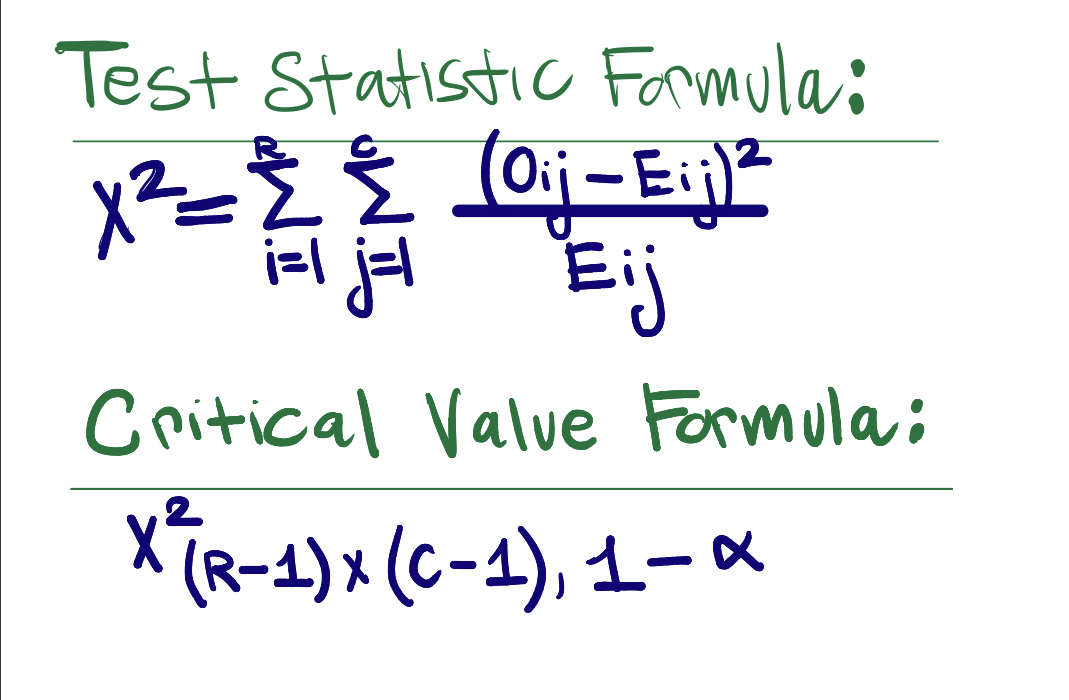 Test Statistic Formula:
X² = Σ^R_{i=1} Σ^C_{j=1} (Oij - Eij)² / Eij
Critical Value Formula:
X²(R-1)x(C-1), 1-α